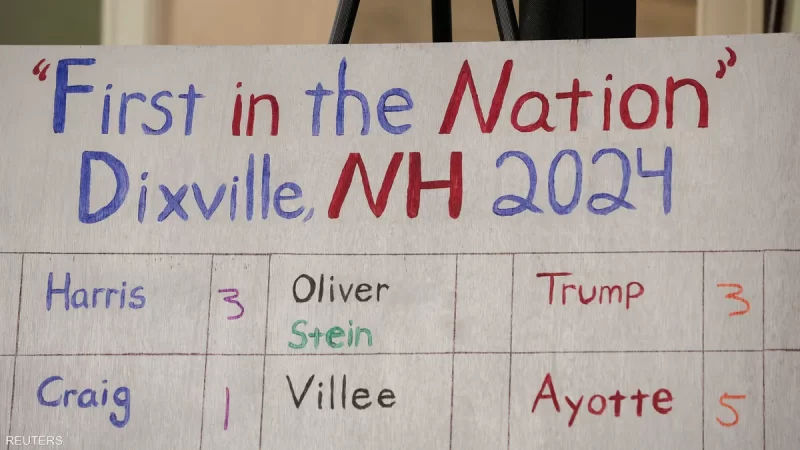 "First in the Nation"
Dixville, NH 2024
Harris 3 Oliver Trump 3
Stein
Craig 1 Villee Ayotte 5
REUTERS